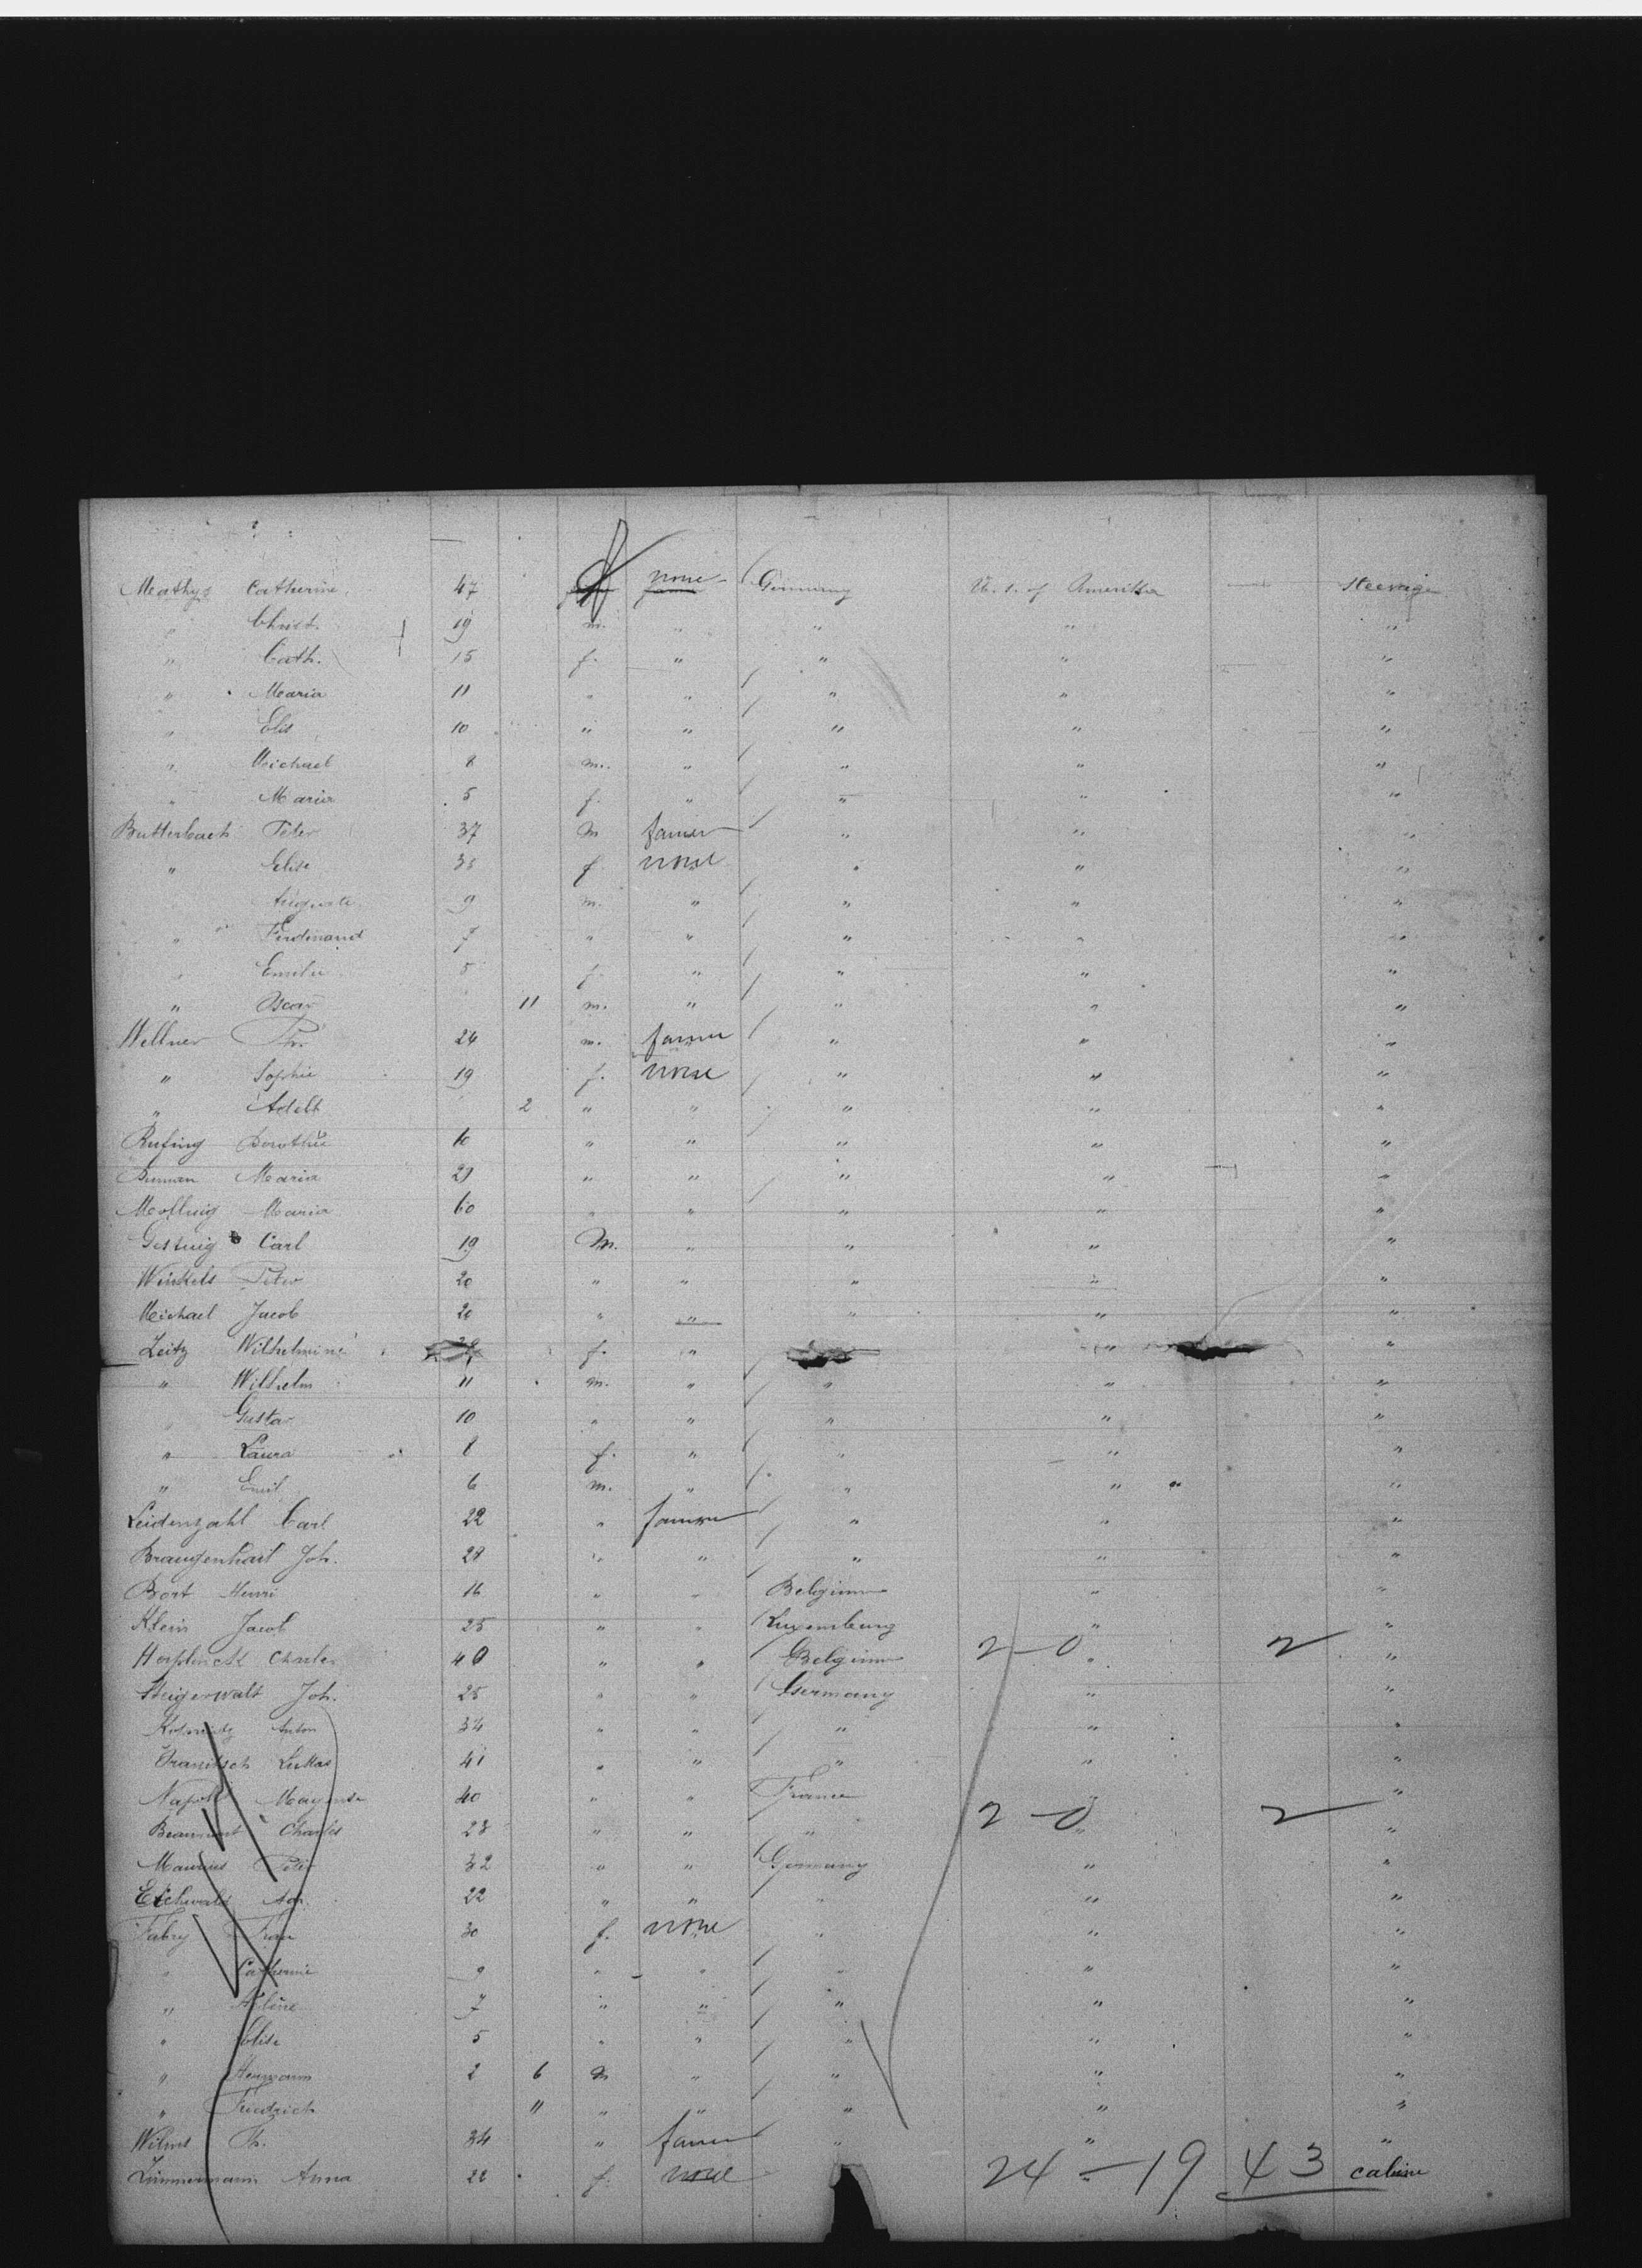 Mathys Catherine 47 none Germany U. S. of Amerika Steerage
" Christ. 19 m. " " " "
" Cath. 15 f. " " " "
" Maria 11 " " " " "
" Elis 10 " " " " "
" Michael 8 m. " " " "
" Maria 5 f. " " " "
Butterbach Peter 37 m farmer " " "
" Elise 35 f none " " "
Auguste 9 m. " " " "
" Ferdinand 7 " " " " "
" Emilie 5 f. " " " "
" Oscar 11 m. " " " "
Wellner 24 m. farmer " " "
" Sophie 19 f. none " " "
" 2 " " " " "
Rufing Dorothée " " " " "
Maria 21 " " " " "
Maria 60 " " " " "
Carl 19 m. " " " "
Winkels Peter 20 " " " " "
Michael Jacob 20 " " " " "
Zeitz Wilhelmine f. " " "
" Wilhelm 11 m. " " " "
Gustav 10 " " " " "
" Laura 8 f. " " " "
" Emil 6 m. " " " "
Leidenzahl Carl 22 " farmer " " "
Joh. 28 " " " " "
Bort Henri 16 " " Belgium " "
Klein Jacob 25 " " Luxemburg " "
Charles 40 " " Belgium 2-0 " 2 "
Steigerwalt Joh. 25 " " Germany " "
Anton 34 " " " " "
Lukas 41 " " " " "
40 " " France " "
Beaumont Charles 28 " " " 2-0 " 2 "
Peter 32 " " Germany " "
22 " " " " "
Fabry Frau 30 f. none " " "
" Catherine 9 " " " " "
" 7 " " " " "
" Elise 5 " " " " "
" Hermann 2 6 m " " " "
" Friedrich 11 " " " " "
Wilms Th. 34 " farmer " " "
Zimmermann Anna 22 f. none 24-19 43 cabine